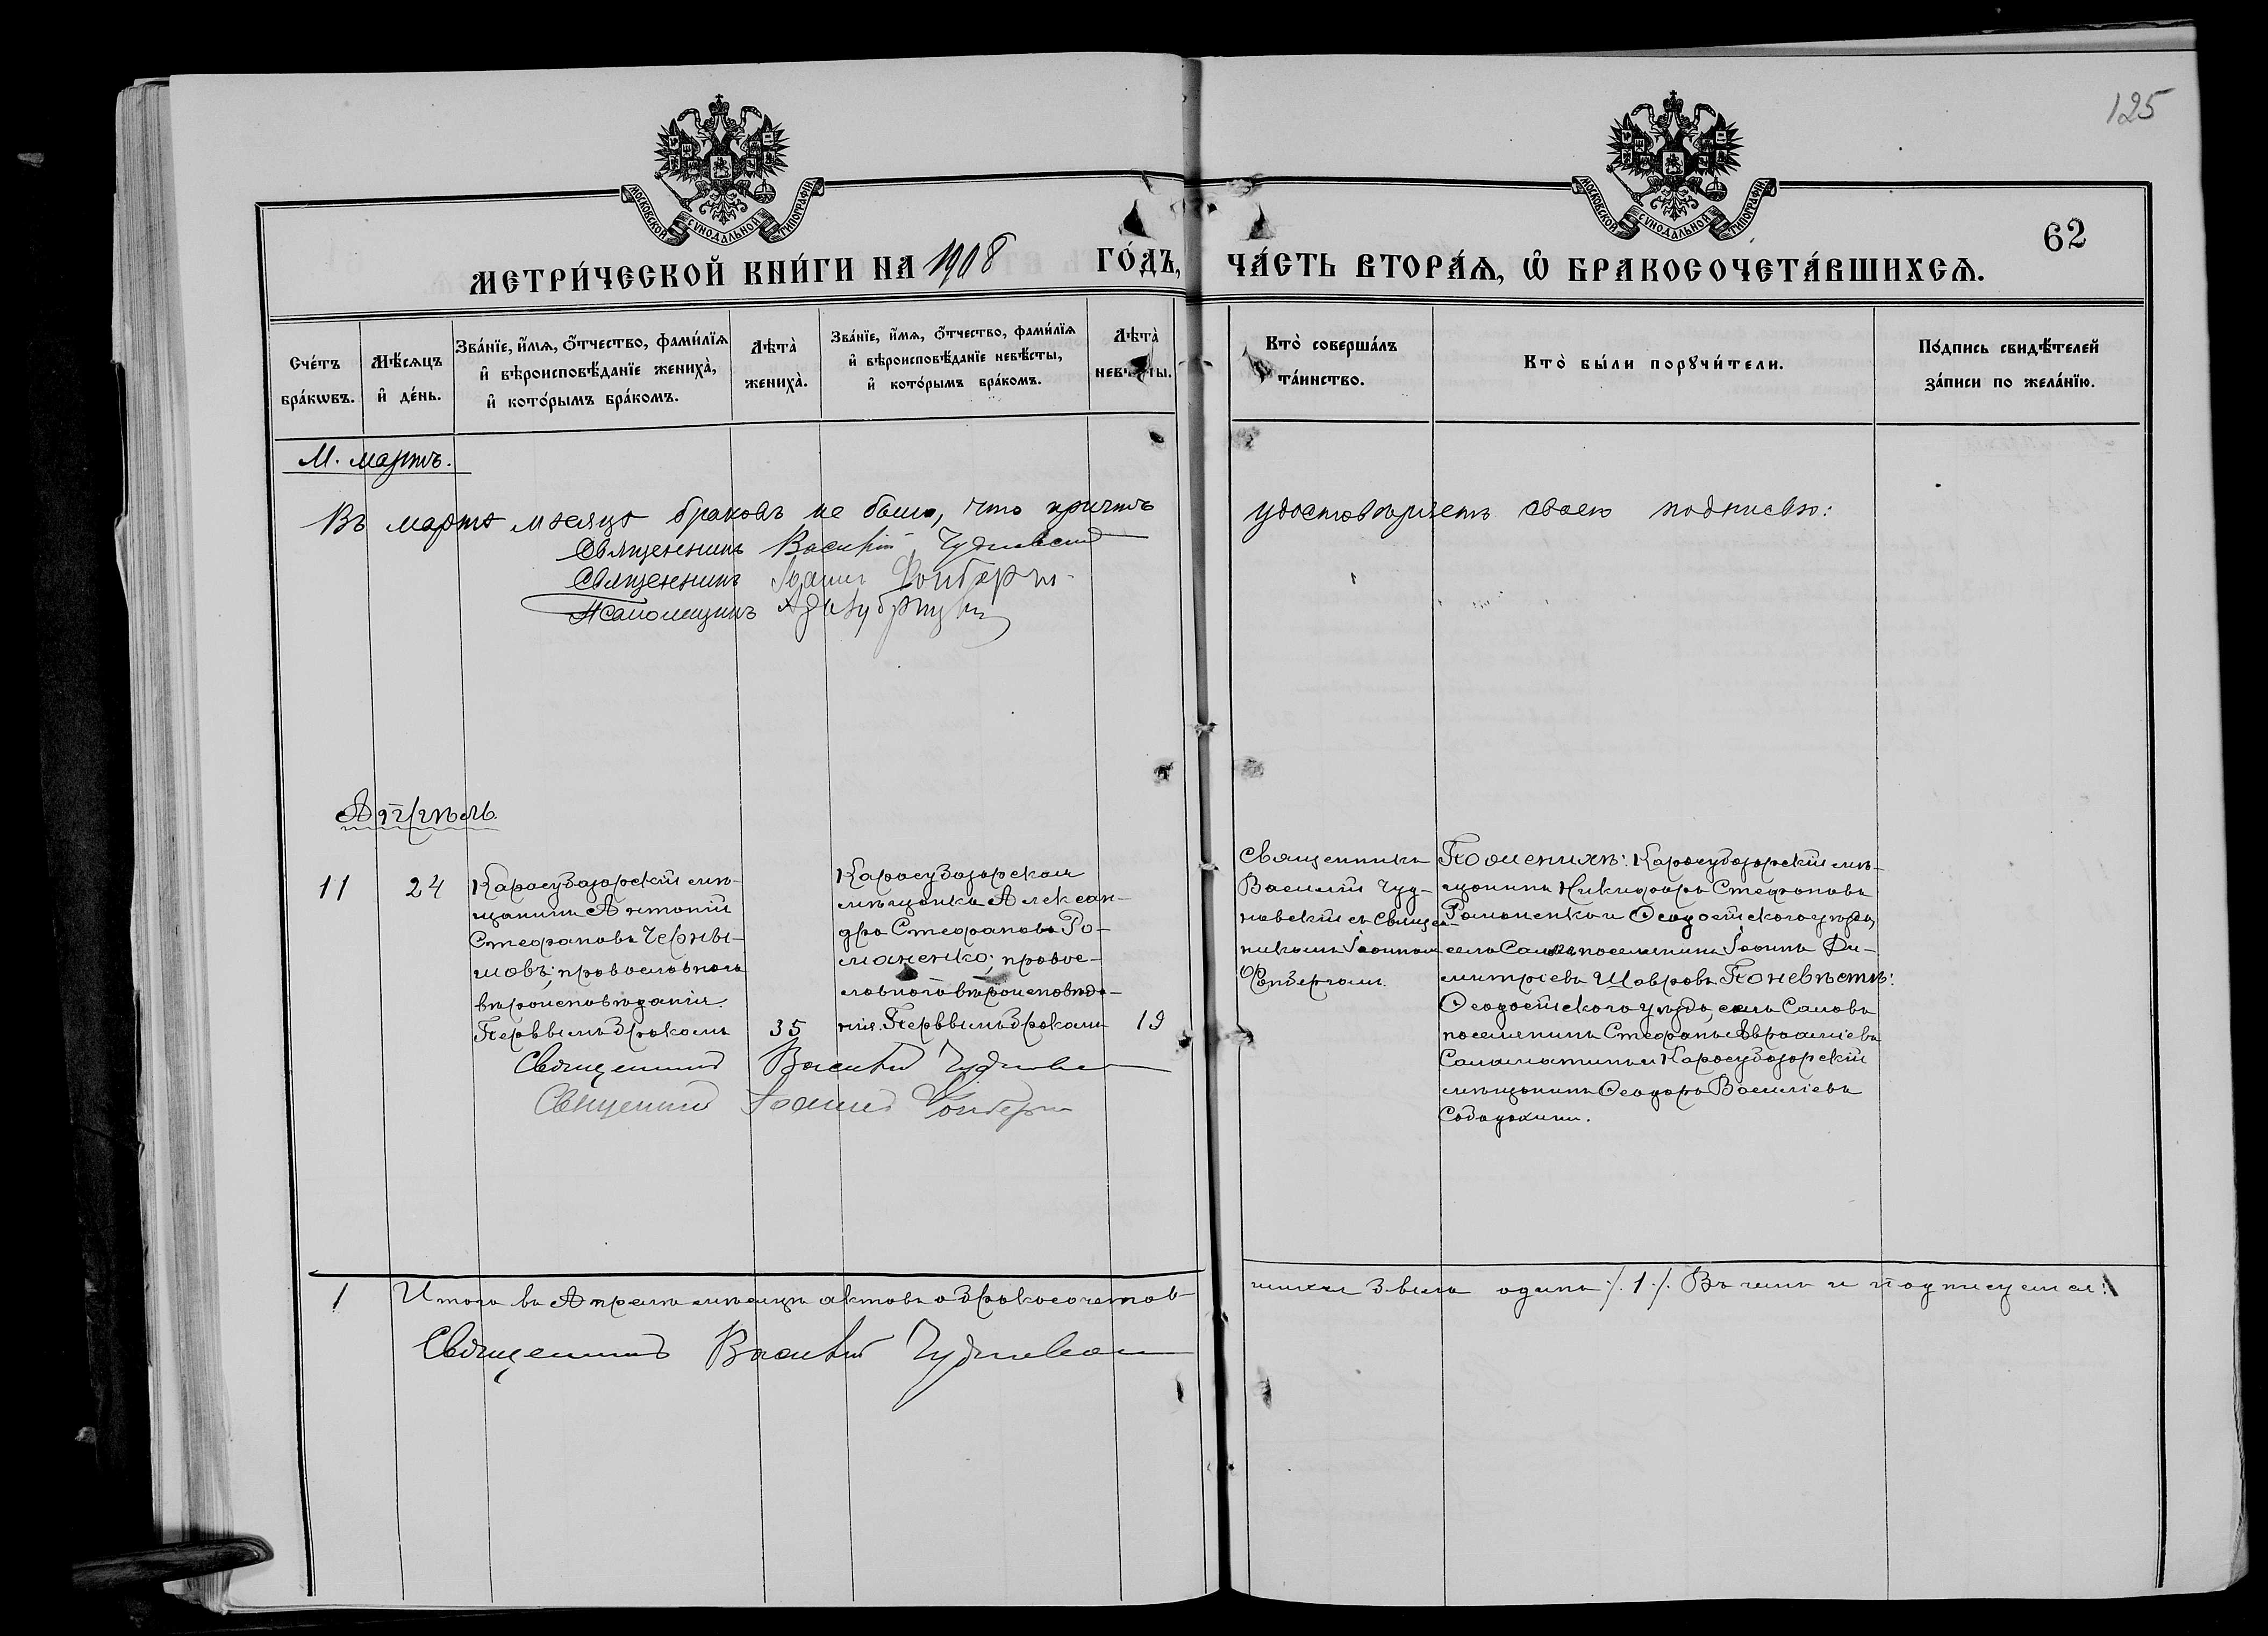 125
МОСКОВСКОЙ СѴНОДАЛЬНОЙ ТИПОГРАФІИ
МОСКОВСКОЙ СѴНОДАЛЬНОЙ ТИПОГРАФІИ
62
МЕТРИ́ЧЕСКОЙ КНИ́ГИ НА 1908 ГО́ДЪ, ЧА́СТЬ ВТОРА́Ѧ, Ѡ҆ БРАКОСОЧЕТА́ВШИХСѦ.
Сче́тъ бра́кѡвъ.
Мѣ́сяцъ и҆ де́нь.
Зва́нїе, и҆́мѧ, ѻ҆́тчество, фами́лїѧ
и҆ вѣроисповѣ́данїе жениха̀,
и҆ кото́рымъ бра́комъ.
Лѣта̀ жениха̀.
Зва́нїе, и҆́мѧ, ѻ҆́тчество, фами́лїѧ
и҆ вѣроисповѣ́данїе невѣ́сты,
и҆ кото́рымъ бра́комъ.
Лѣта̀ невѣ́сты.
Кто̀ соверша́лъ та́инство.
Кто̀ бы́ли порꙋчи́тели.
По́дпись свидѣ́телей
за́писи по жела́нїю.
М. мартъ.
Въ мартѣ мѣсяцѣ браковъ не было, что причтъ удостовѣряетъ своею подписью:
Священникъ Василій Чудновскій
Священникъ Іоаннъ
Псаломщикъ
Апрѣль.
11
24
Карасубазарскій мѣ-
щанинъ Антоній
Стефановъ Черны-
шовъ; православнаго
вѣроисповѣданія.
Первымъ бракомъ
35
Карасубазарская
мѣщанка Александ-
дра Стефанова Ро-
маненко; правос-
лавнаго вѣроисповѣда-
нія. Первымъ бракомъ
19
Священникъ
Василій Чуд-
новскій съ Священ-
никомъ Іоанномъ
По женихѣ: Карасубазарскій мѣ-
щанинъ Никифоръ Стефановъ
Романенко и Ѳеодосійскаго уѣзда,
села Салы поселянинъ Іоаннъ Ди-
митріевъ Шавровъ. По невѣстѣ:
Ѳеодосійскаго уѣзда, села Саловъ
поселянинъ Стефанъ Аврааміевъ
Саламатинъ и Карасубазарскій
мѣщанинъ Ѳеодоръ Василіевъ
Священникъ Василій Чудновскій
Священникъ Іоаннъ
1
Итого въ Апрѣлѣ мѣсяцѣ актовъ о бракосочетав-
шихся было одинъ /.1/. Въ чемъ и подписуемся:
Священникъ Василій Чудновскій